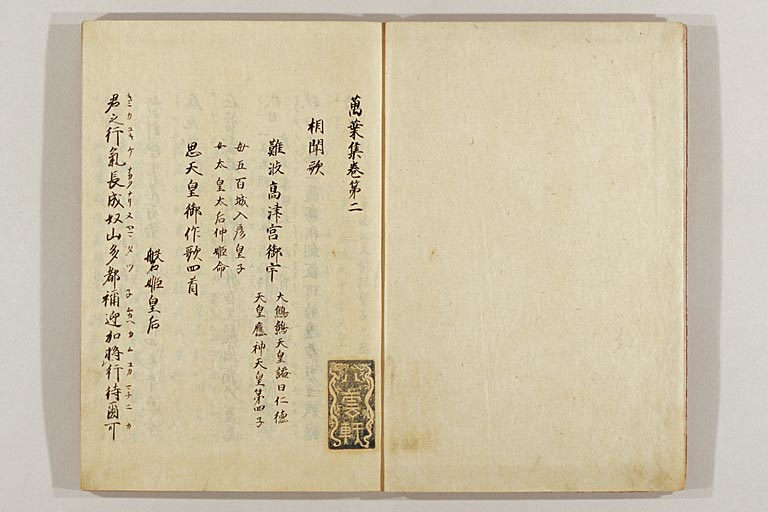 萬葉集卷第二
相聞歌
難波高津宮御宇
大鷦鷯天皇謚曰仁德
天皇應神天皇第四子
母五百城入彦皇子
女太皇太后仲姫命
思天皇御作歌四首
磐姫皇后
君之行氣長成奴山多都禰迎加將行待爾可
キミカユキケナカクナリヌヤマタツ子ムカヘカユカムマチニカ
雲軒